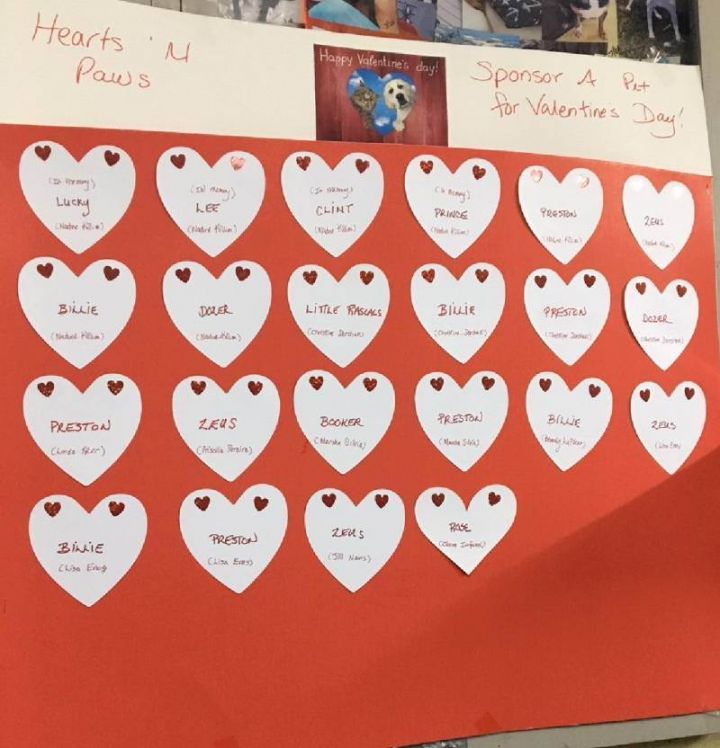 Hearts 'N
Paws
Happy Valentine's day!
Sponsor A Pet
for Valentine's Day!
(In memory)
Lucky
(Nadine Killim)
(In memory)
LEE
(Nadine Killim)
(In memory)
CLINT
(Nadine Killim)
(In memory)
PRINCE
(Nadine Killim)
PRESTON
(Nadine Killim)
ZEUS
(Nadine Killim)
BILLIE
(Nadine Killim)
DOZER
(Nadine Killim)
LITTLE RASCALS
(Christine
BILLIE
(Christine
PRESTON
(Christine
DOZER
(Christine
PRESTON
(Linda
ZEUS
(Priscilla Pereira)
BOOKER
(Marsha Silvia)
PRESTON
(Marsha Silvia)
BILLIE
(Wendy
ZEUS
(Lisa Emig)
BILLIE
(Lisa Emig)
PRESTON
(Lisa Emig)
ZEUS
(Jill
ROSE